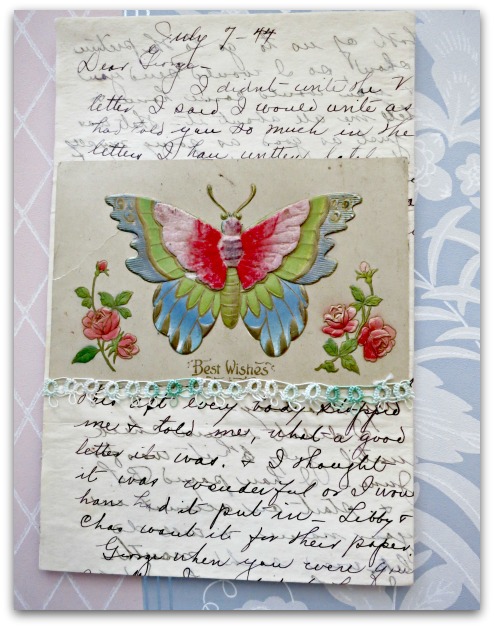 July 7-44
Dear George-
I didnt write the V
letter I said I would write as
had told you so much in the
letters I have written
Best Wishes
aft every body stopped
me & told me, what a good
letter it was. & I thought
it was wonderful or I wou
have had it put in - Libby &
Chas want it for their paper.
George when you were